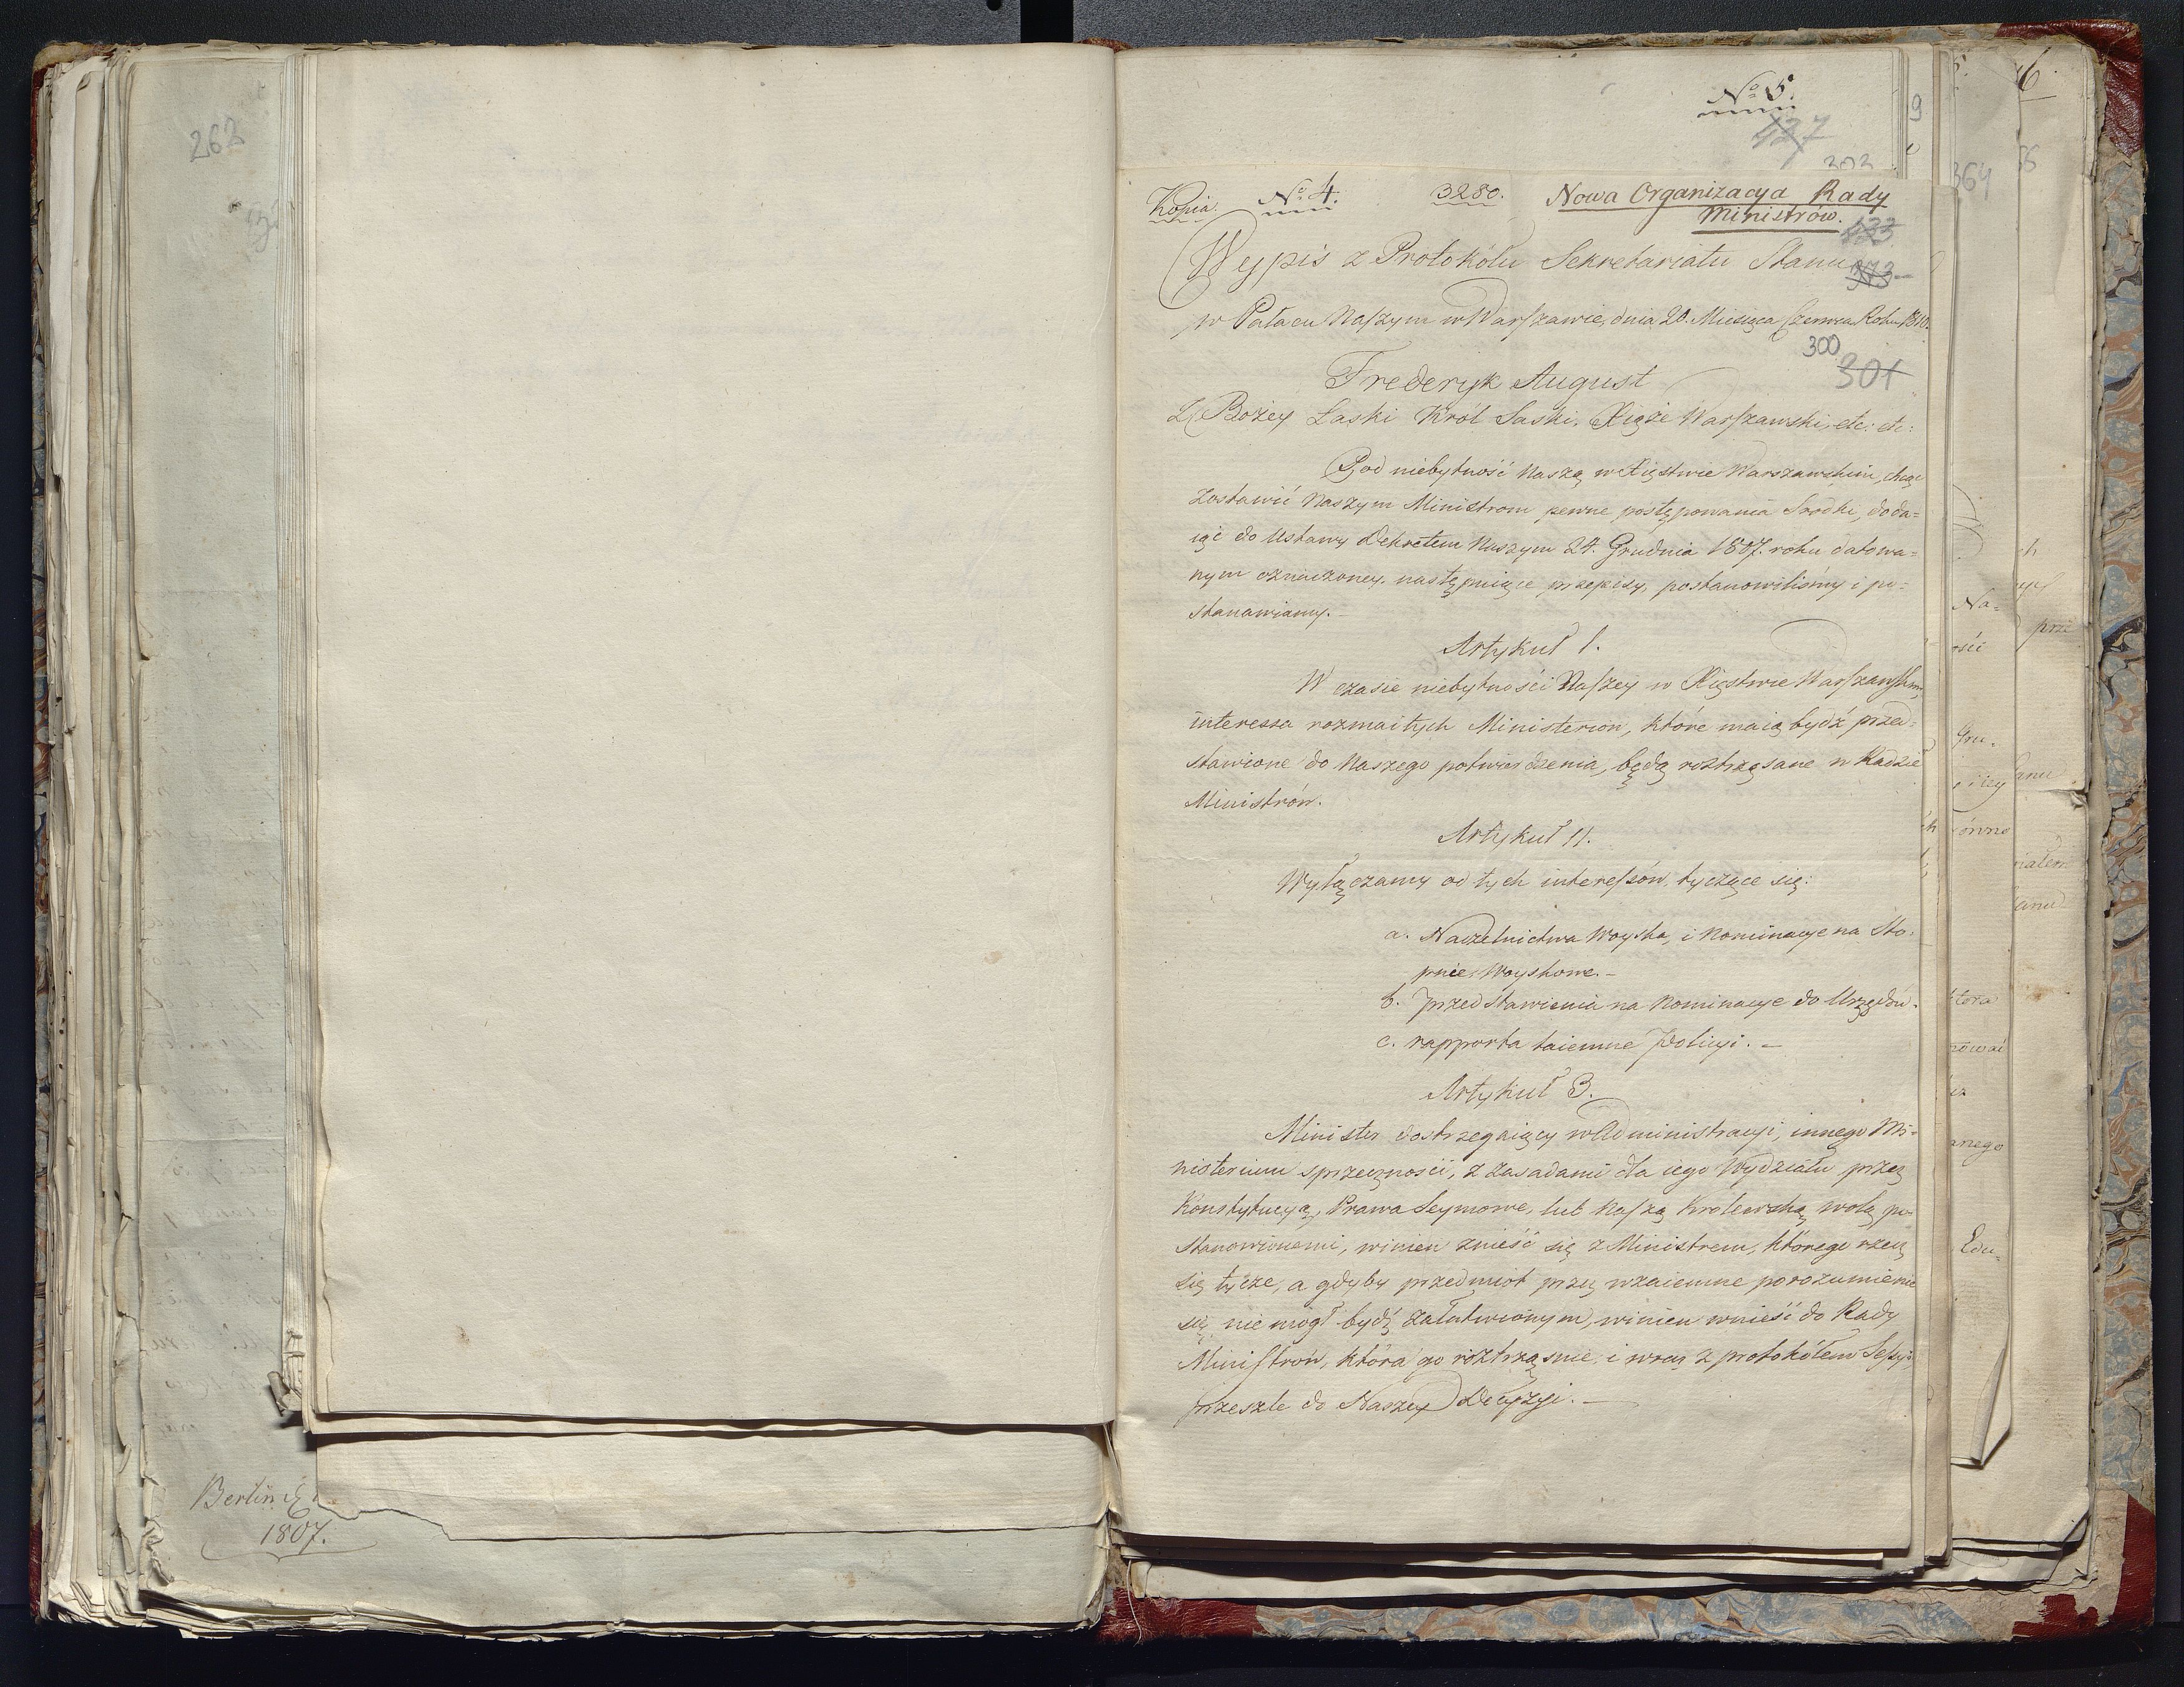 262
Berlin
1807.
No 5.
427
202
Kopia. No 4. 3280. Nowa Organizacya Rady
Ministrów.
423
Wypis z Protokółu Sekretariatu Stanu
373
w Pałacu Naszym w Warszawie, dnia 20. Miesiąca Czerwca Roku 1810.
300
301
Frederyk August
Z Bożey Łaski Król Saski, Xiąże Warszawski, etc: etc:
Pod niebytność Naszą w Xięstwie Warszawskim, chcąc
zostawić Naszym Ministrom pewne postępowania Srodki, doda=
iąc do Ustawy Dekretem Naszym 24. Grudnia 1807. roku datowa=
nym oznaczoney, następuiące przepisy, postanowiliśmy i po=
stanawiamy.–
Artykuł 1.
W czasie niebytności Naszey w Xięstwie Warszawskim,
interessa rozmaitych Ministeriow, które maią bydź przed=
stawione do Naszego potwierdzenia, będą roztrząsane w Radzie
Ministrów.
Artykuł 11.
Wyłączamy od tych interessów, tyczące się:
a. Naczelnictwa Woyska, i Nominacye na Sto=
pnie Woyskowe.–
b. przedstawienia na Nominacye do Urzędów.
c. rapporta taiemne Policyi.–
Artykuł 3.
Minister dostrzegaiący w Administracyi, innego Mi=
nisterium sprzeczności, z zasadami dla iego Wydziału przez
Konstytucyą, Prawa Seymowe, lub Naszą Królewską wolą po=
stanowionemi, winien znieść się z Ministrem, którego rzecz
się tycze, a gdyby przedmiot przez wzaiemne porozumienie
się nie mógł bydź załatwionym, winien wnieść do Rady
Ministrów, która go roztrząśnie, i wraz z protokółem Sessyi,
prześle do Naszey Decyzyi.–
9
364
Na=
ości
Gru.
i iey
ównó
tora
nować
anego
Edu=
6.
66
prze
anu
iałem